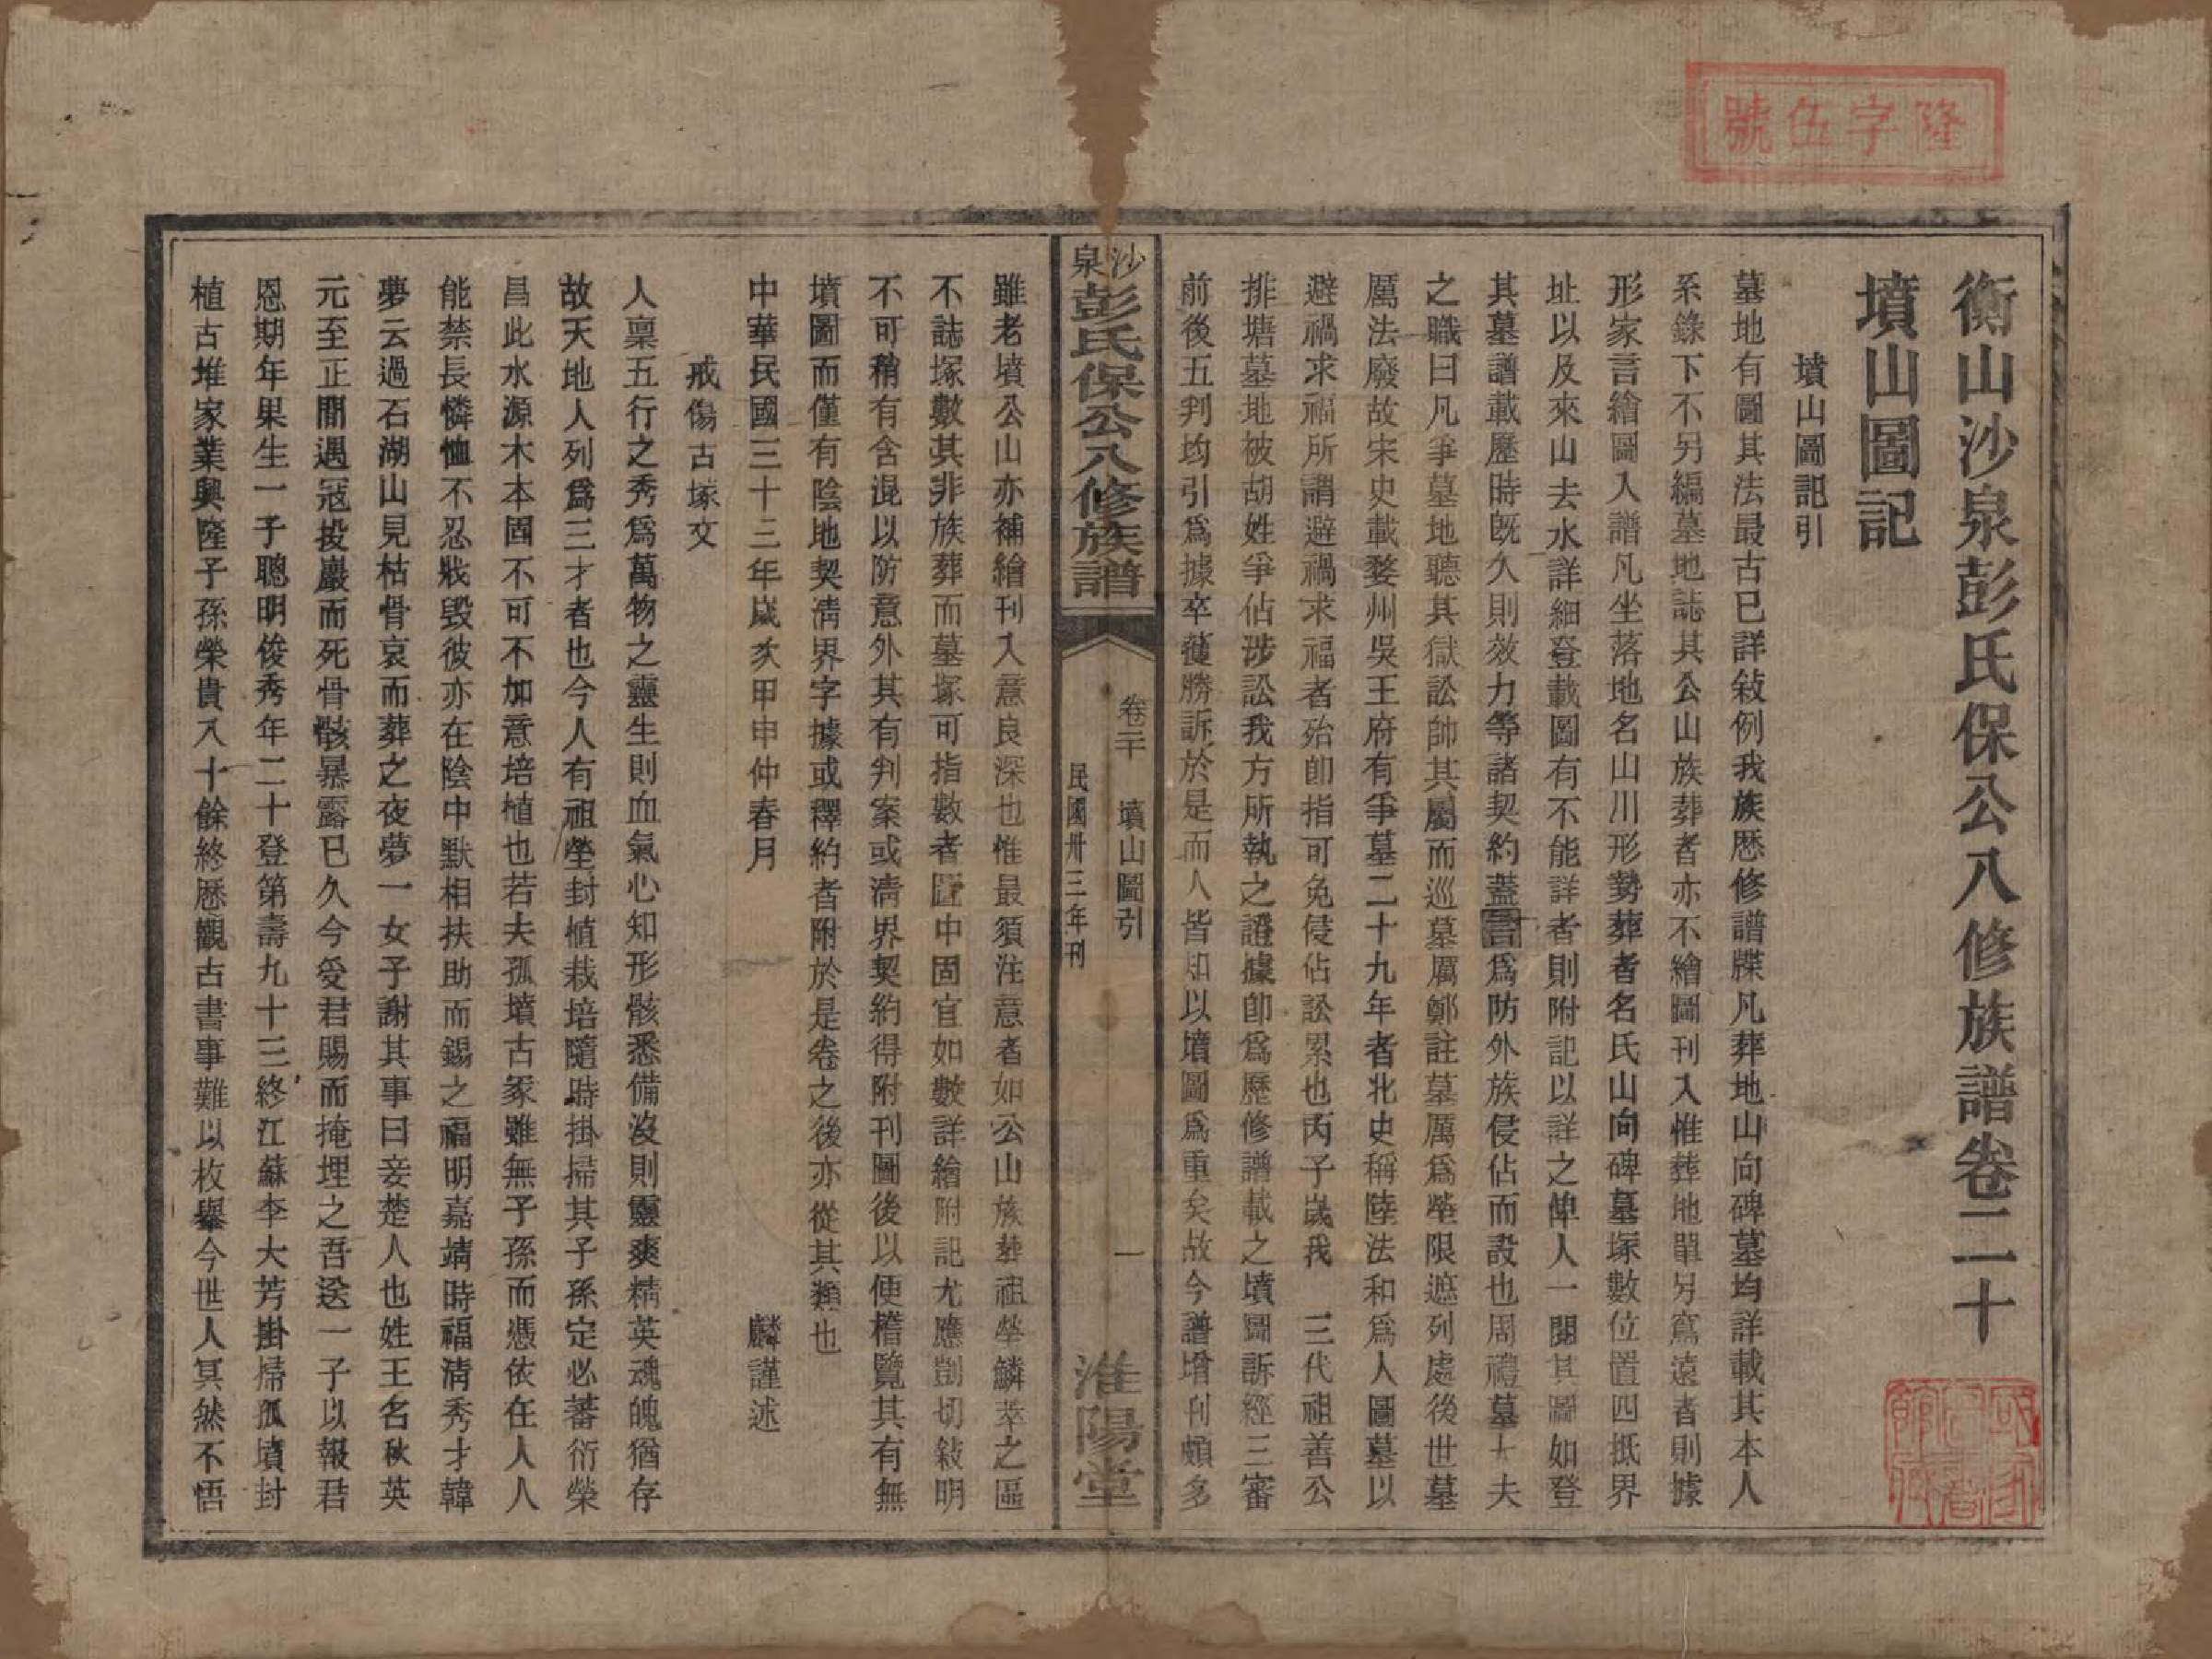 隆字伍號
衡山沙泉彭氏保公八修族譜卷二十
墳山圖記
墳山圖記引
墓地有圖其法最古已詳敍例我族歷修譜牒凡葬地山向碑墓均詳載其本人
系錄下不另編墓地誌其公山族葬者亦不繪圖刊入惟葬地單另窵遠者則據
形家言繪圖入譜凡坐落地名山川形勢葬者名氏山向碑墓塚數位置四抵界
址以及來山去水詳細登載圖有不能詳者則附記以詳之俾人一閱其圖如登
其墓譜載歷時旣久則效力等諸契約蓋圖爲防外族侵佔而設也周禮墓大夫
之職曰凡爭墓地聽其獄訟帥其屬而巡墓厲鄭註墓厲爲塋限遮列處後世墓
厲法廢故宋史載婺州吳王府有爭墓二十九年者北史稱陸法和爲人圖墓以
避禍求福所謂避禍求福者殆卽指可免侵佔訟累也丙子歲我 三代祖善公
排塘墓地被胡姓爭佔涉訟我方所執之證據卽爲歷修譜載之墳圖訴經三審
前後五判均引爲據卒獲勝訴於是而人皆知以墳圖爲重矣故今譜增刊頗多
沙泉彭氏保公八修族譜
卷二十 墳山圖引 一
民國卅三年刊
淮陽堂
雖老墳公山亦補繪刊入意良深也惟最須注意者如公山族葬祖塋鱗萃之區
不誌塚數其非族葬而墓塚可指數者圖中固宜如數詳繪附記尤應剴切敍明
不可稍有含混以防意外其有判案或清界契約得附刊圖後以便檔覽其有無
墳圖而僅有陰地契清界字據或釋約者附於是卷之後亦從其類也
中華民國三十三年歲次甲申仲春月 麟謹述
戒傷古塚文
人稟五行之秀爲萬物之靈生則血氣心知形骸悉備沒則靈爽精英魂魄猶存
故天地人列爲三才者也今人有祖塋封植栽培隨時掛掃其子孫定必蕃衍榮
昌此水源木本固不可不加意培植也若夫孤墳古冢雖無子孫而憑依在人人
能禁長憐恤不忍戕毀彼亦在陰中默相扶助而錫之福明嘉靖時福清秀才韓
夢云過石湖山見枯骨哀而葬之夜夢一女子謝其事曰妾楚人也姓王名秋英
元至正間遇寇投巖而死骨骸暴露已久今受君賜而掩埋之吾送一子以報君
恩期年果生一子聰明俊秀年二十登第壽九十三終江蘇李大芳掛掃孤墳封
植古堆家業興隆子孫榮貴八十餘終歷觀古書事難以枚舉今世人冥然不悟